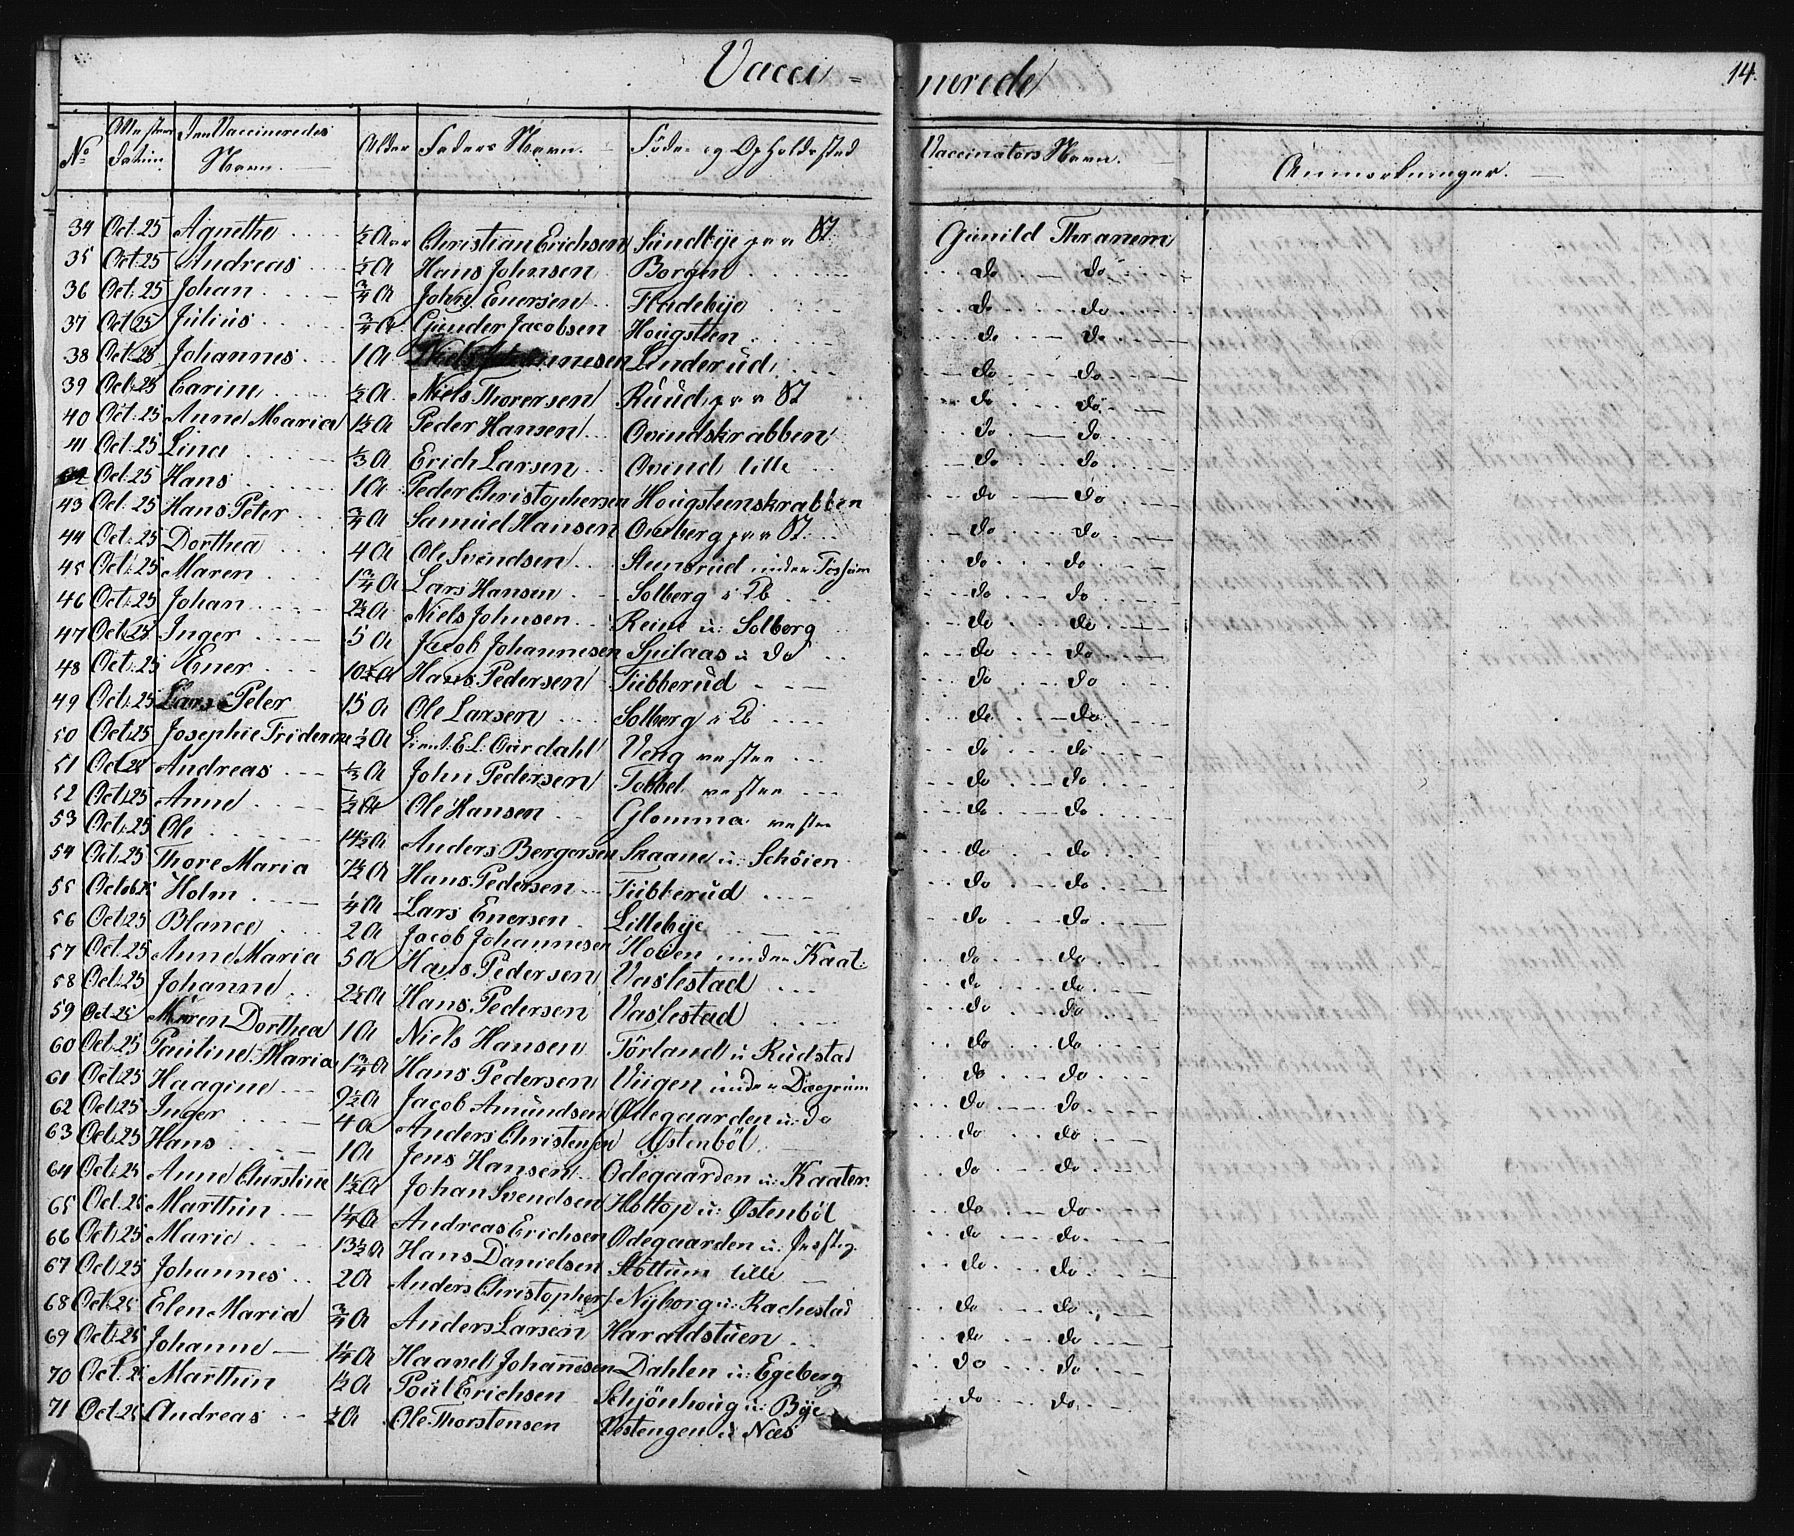 Vacci-nerede
14.
No Attestens Datum Den Vaccineredes Navn. Alder Faders Navn. Føde- og Opholdssted Vaccinators Navn. Anmærkninger.
34 Oct. 25 Agnethe ½ Aar Christian Erichsen Sundbye Gunild Thranem
35 Oct. 25 Andreas ½ A Hans Johnsen Borgen do do
36 Oct. 25 Johan ¾ A John Enersen Fladebye do do
37 Oct. 25 Julius ¾ A Gunder Jacobsen Hougsten do do
38 Oct. 25 Johannes 1 A Niels Johannesen Linderud do do
39 Oct. 25 Carine ½ A Niels Thorersen Ruud do do
40 Oct. 25 Anne Maria 1½ A Peder Hansen Ovindskrabben do do
41 Oct. 25 Lina ⅓ A Erich Larsen Ovind lille do do
Oct. 25 Hans 1 A Peder Christophersen Hougsteenskrabben do do
43 Oct. 25 Hans Peter ¾ A Samuel Hansen Overberg do do
44 Oct. 25 Dorthea 4 A Ole Svendsen Stensrud under do do
45 Oct. 25 Maren 1¾ A Lars Hansen Solberg i do do
46 Oct. 25 Johan 2½ A Niels Johnsen Reine u: Solberg do do
47 Oct. 25 Inger 5 A Jacob Johannesen Spilaas u do do do
48 Oct. 25 Ener 10½ A Hans Pedersen Tubberud do do
49 Oct. 25 Lars Peter 15 A Ole Larsen Solberg i do do
50 Oct. 25 Josephie ½ A E. L. Aardahl Veng vestre do do
51 Oct. 25 Andreas ½ A John Pedersen Tobbel vestre do do
52 Oct. 25 Anne ½ A Ole Hansen Glomma vestre do do
53 Oct. 25 Ole 14½ A Anders Bergersen Skaane u: Schöien do do
54 Oct. 25 Thore Maria 7½ A Hans Pedersen Tubberud do do
55 Oct. 25 Holm ¼ A Lars Enersen Lillebye do do
56 Oct. 25 Blance 2 A Jacob Johannesen Hoien under Kaat. do do
57 Oct. 25 Anne Maria 5 A Hans Pedersen Vaslestad do do
58 Oct. 25 Johanne 2½ A Hans Pedersen Vaslestad do do
59 Oct. 25 Maren Dorthea 1 A Niels Hansen Törland u Rudstad do do
60 Oct. 25 Pauline Maria 1¾ A Hans Pedersen Viigen under do do
61 Oct. 25 Haagine 9½ A Jacob Amundsen Ødegaarden u: do do do
62 Oct. 25 Inger 4 a Anders Christensen Østenböl do do
63 Oct. 25 Hans 1 A Jens Hansen Odegaarden u: Kaater. do do
64 Oct. 25 Anne Christine 1½ A Johan Svendsen Holtop u: Østenböl do do
65 Oct. 25 Marthin 1¼ A Andreas Erichsen Odegaarden u: do do
66 Oct. 25 Marie 13½ A Hans Danielsen Stottum lille do do
67 Oct. 25 Johannes 2 A Anders Christophers. Nyborg u: Rachestad do do
68 Oct. 25 Elen Maria ¾ A Anders Larsen Haraldstuen do do
69 Oct. 25 Johanne 1¼ A Haavel Johannesen Dahlen u: Egeberg do do
70 Oct. 25 Marthin 1½ A Poul Erichsen Schjönhoug u: Bye do do
71 Oct. 25 Andreas ½ A Ole Thorstensen Vestengen u Næs